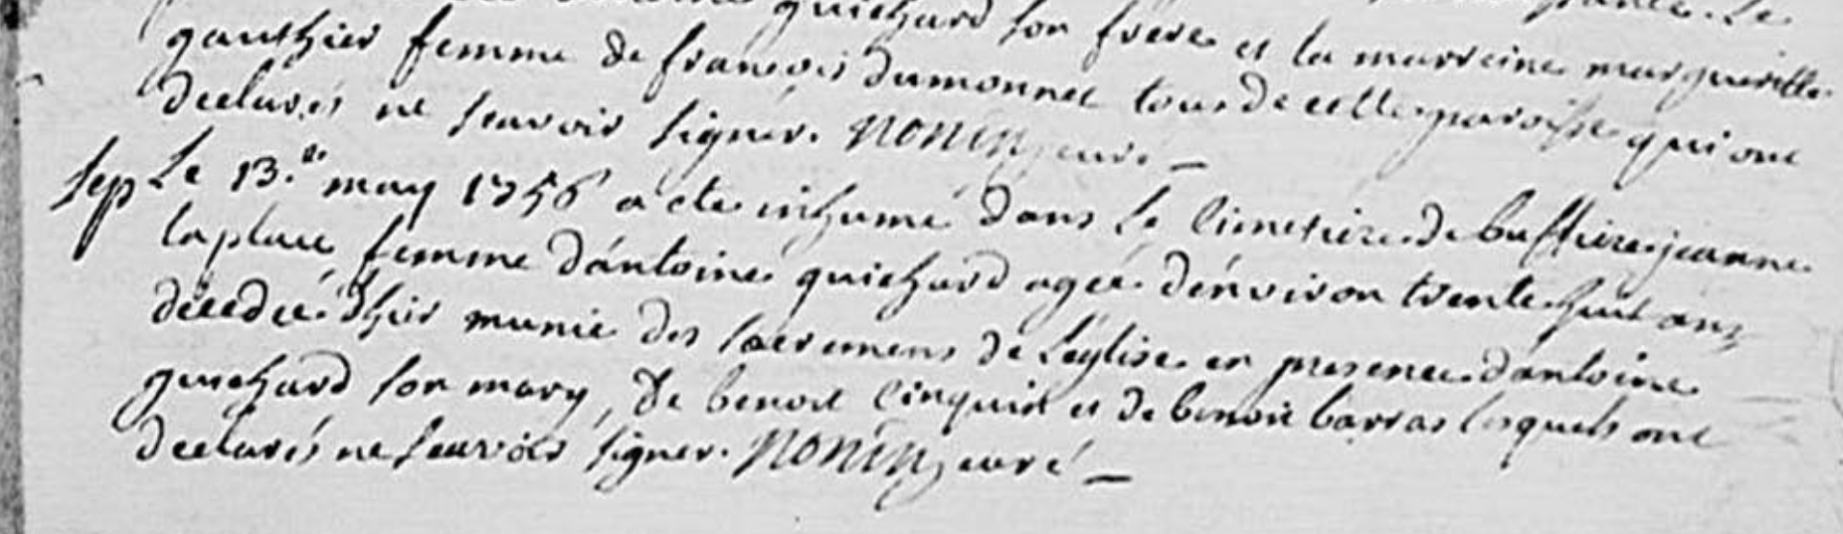 guichard son frere et la marreine margueritte
gauthier femme de francois dumonnet tous de cette paroisse qui ont
declarés ne scavoir signer. Nonin curé
sep Le 13.e may 1756 a ete inhumé dans le cimetiere de buffiere jeanne
laplace femme d'antoine guichard agée d'environ trente huit ans
décedée d'hier munie des sacremens de l'eglise en presence d'antoine
guichard son mary, de benoit cinquin et de benoit barras lesquels ont
declarés ne scavoir signer. Nonin curé